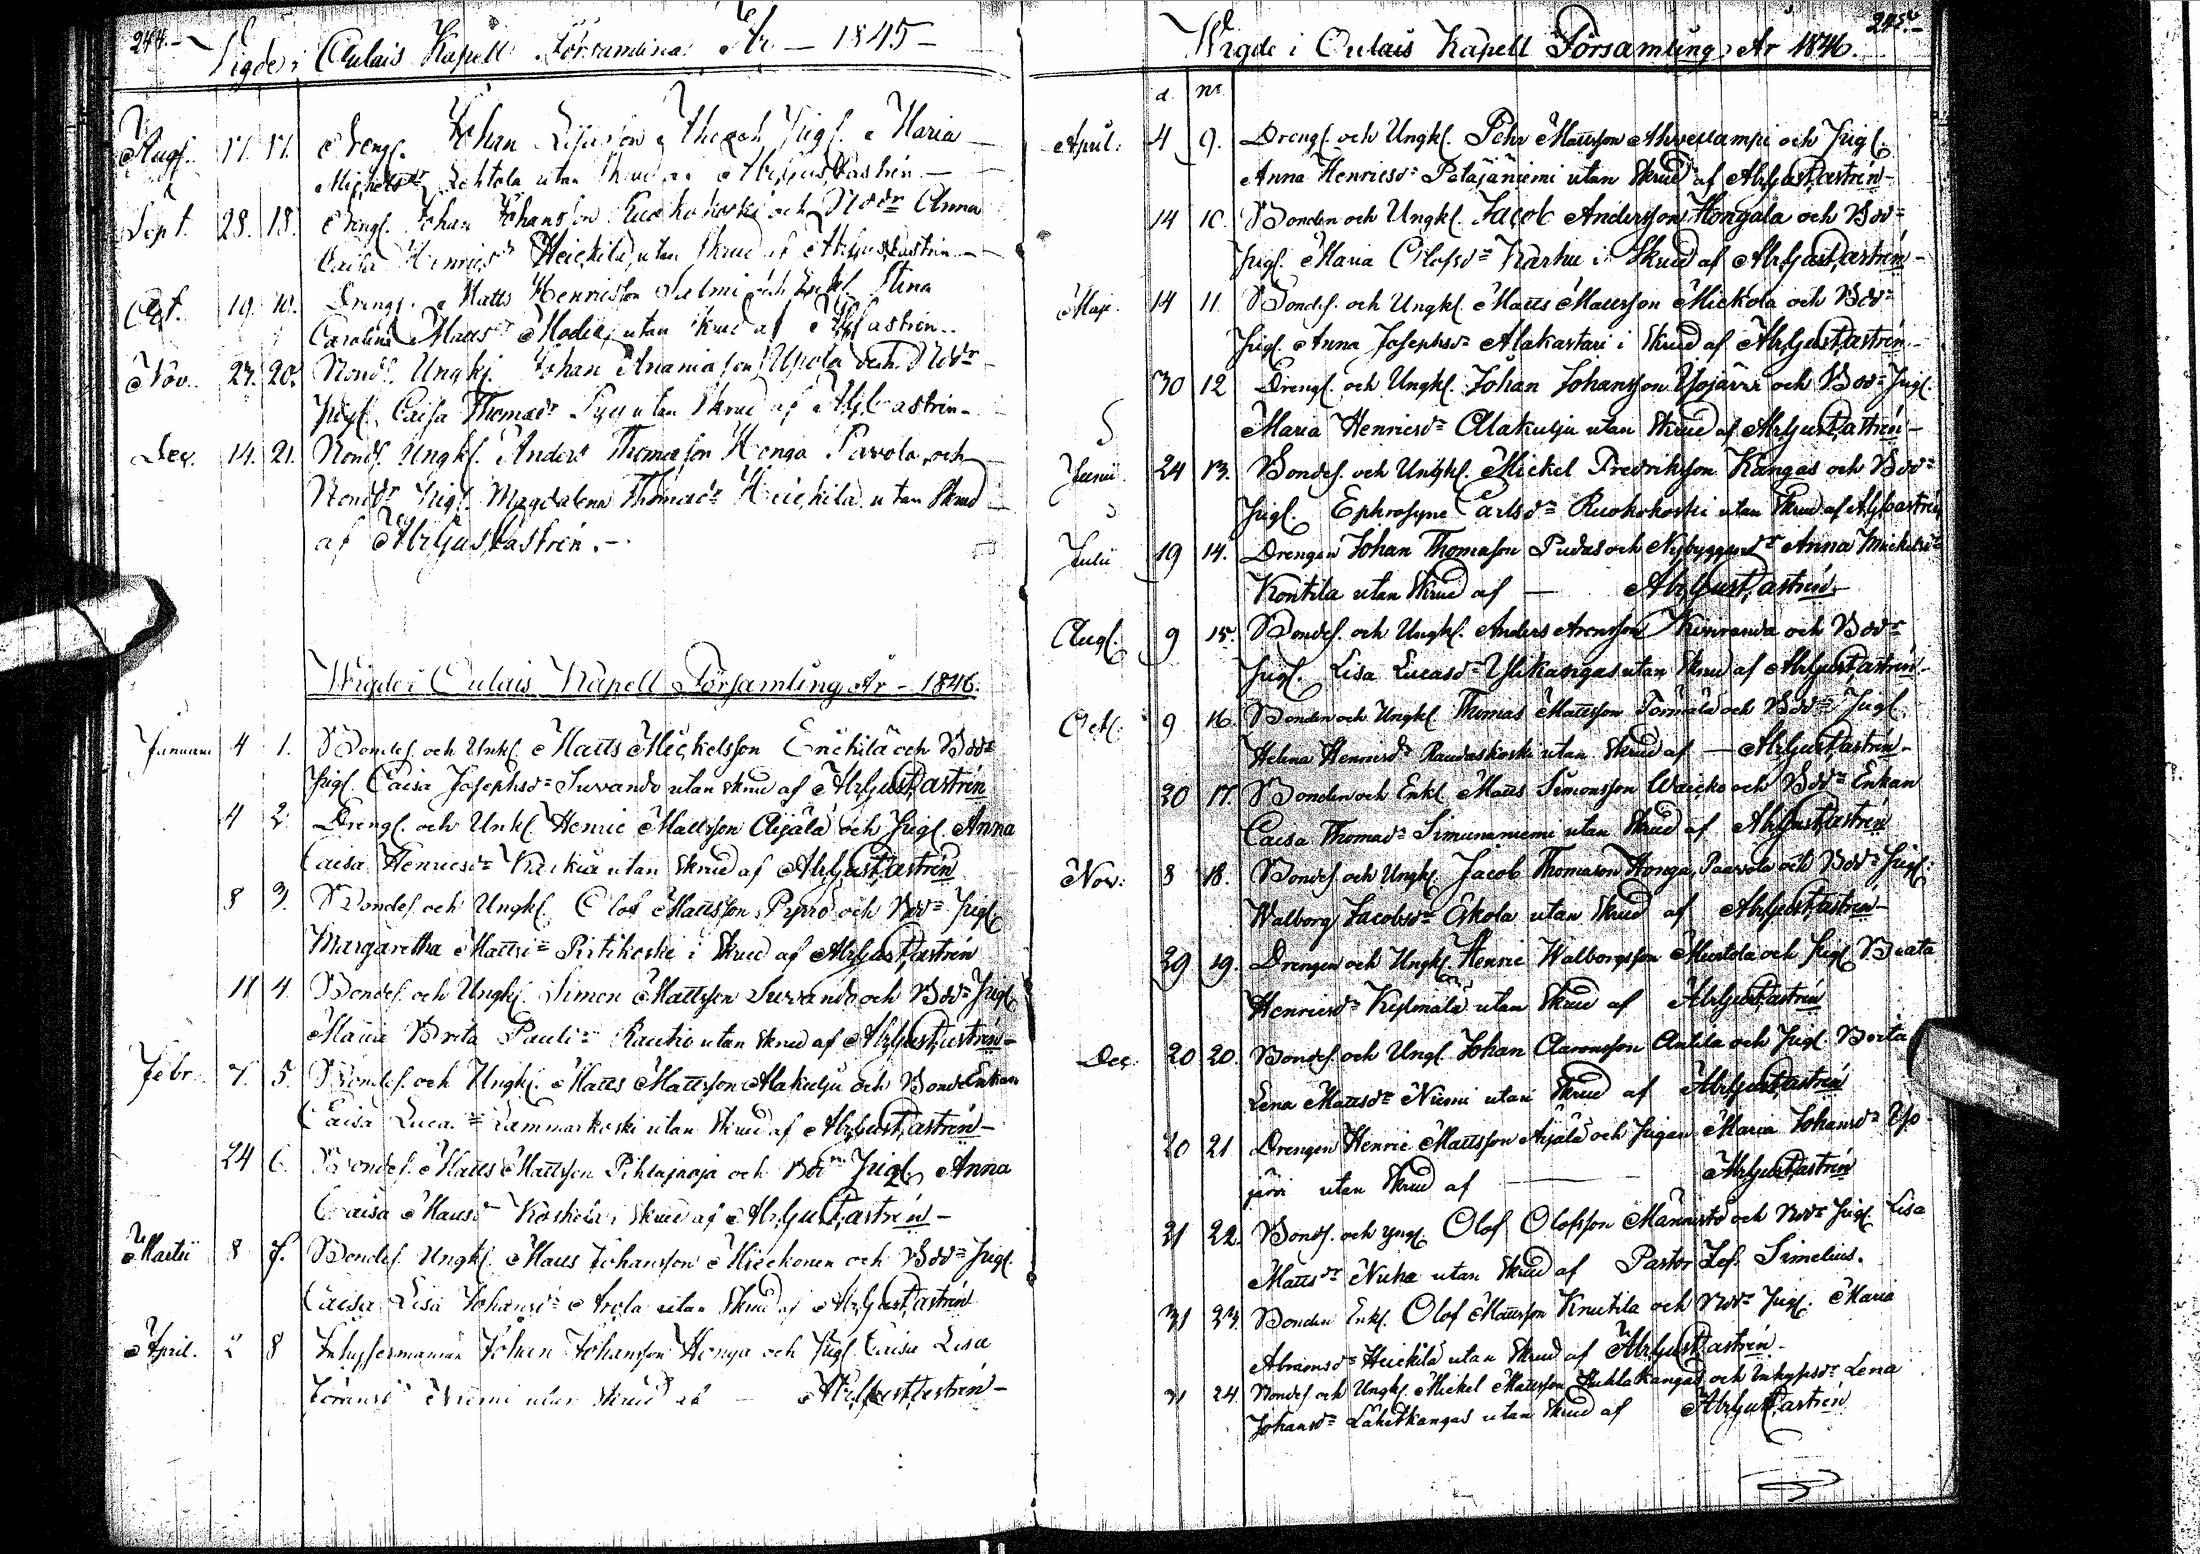 244.
Vigde i Oulais Kapell Församling År 1845
Aug. 17. 17. Dreng. Johan och Pigl. Maria
Michelsdr Lehtola utan Skrud af Abr Gust Castrén
Sept. 28. 18. Dreng. Johan Johansson Ruokokoski och Bddr Anna
Caisa Henricsdr Heickilä utan Skrud af Abr Gust Castrén
Oct. 19. 19. Drengs. Matts Henricsson Selmi och Stina
Carolina Mattsdr utan Skrud af Abr G Castrén
Nov. 23. 20. Bonds. Ungk. Johan Ananiasson Upola och Bddr
Pigl. Caisa Thomasdr Pyy utan Skrud af Abr G Castrén
Dec. 14. 21. Bonds. Ungk. Anders Thomasson Honga Pavola och
Bonddr Pigl. Magdalena Thomasdr Heickilä utan Skrud
af Abr Gust Castrén.
Wigde i Oulais Kapell Församling År 1846.
Januarii 4 1. Bondes. och Unkl. Matts Mickelsson Erickilä och Bddr
Pigl. Caisa Josephsdr Suvando utan skrud af Abr Gust Castrén
4 2. Drengl. och Unkl. Henric Mattsson Äijälä och Pigl. Anna
Caisa Henricsdr utan Skrud af Abr Gust Castrén
8 3. Bondes. och Ungkl. Olof Mattsson Pyrrö och Bddr Pigl.
Margaretha Mattsdr Pirtikoski i Skrud af Abr Gust Castrén
11 4. Bondes. och Ungkl. Simon Mattsson Suvando och Bddr Pigl.
Maria Brita Paulsdr Rautio utan Skrud af Abr Gust Castrén
Febr. 7. 5. Bondes. och Ungkl. Matts Mattsson Alakulju och Bonde Enkan
Caisa Lucasdr Lammaskoski utan Skrud af Abr Gust Castrén
24 6. Bondes. Matts Mattsson Pihlajaoja och Bddr Pigl. Anna
Caisa Mattsdr Koskela i Skrud af Abr. Gust Castrén
Martii 8 7. Bondes. Ungkl. Matts Johansson Mieckonen och Bddr Pigl.
Caisa Lisa Johansdr Arola utan Skrud af Abr Gust Castrén
April. 2 8 Inhysesmannen Johan Johansson Honga och Pigl Caisa Lisa
Göransdr Niemi utan Skrud af Abr Gust Castrén
245.
Wigde i Oulais Kapell Församling, År 1846.
d. nr
April: 4 9. Drengl. och Ungkl. Pehr Mattsson Ahvenlampi och Pigl.
Anna Henricsdr Petäjäniemi utan Skrud af Abr Gust Castrén
14 10. Bonden och Ungkl. Jacob Andersson Hongala och Bddr
Pigl. Maria Olofsdr Karhu i Skrud af Abr Gust Castrén
Maji. 14 11. Bondes. och Ungkl. Matts Mattsson Mickola och Bddr
Pigl Anna Josephsdr Alakastari i Skrud af Abr Gust Castrén
30 12 Drengl. och Ungkl. Johan Johansson Ysojärvi och Bddr Pigl.
Maria Henricsdr Alakulju utan Skrud af Abr Gust Castrén
Junii 24 13. Bondes. och Ungkl. Mickel Fredriksson Kangas och Bddr
Pigl. Ephrosyne Carlsdr Ruokokoski utan Skrud af Ab G Castrén
Julii 19 14. Drengen Johan Thomasson Pudas och Nybyggaredr Anna Mickelsdr
Kontila utan Skrud af Abr Gust Castrén
Aug. 9 15. Bondes. och Ungkl. Anders Aronsson Kiviranda och Bddr
Pigl. Lisa Lucasdr Ylikangas utan Skrud af Abr Gust Castrén
Oct. 9 16. Bonden och Ungkl Thomas Mattsson Törmälä och Bddr Pigl.
Helena Henricsdr Raudaskoski utan Skrud af Abr Gust Castrén
20 17. Bonden och Enkl. Matts Simonsson Waicko och Bddr Enkan
Caisa Thomasdr Simunaniemi utan Skrud af Abr Gust Castrén
Nov: 8 18. Bondes. och Ungkl Jacob Thomasson Honga Paavola och Bddr Pigl:
Walborg Jacobsdr Eskola utan Skrud af Abr Gust Castrén
29 19. Drengen och Ungkl Henric Walborgsson Murtola och Pigl Beata
Henricsdr Kesämälä utan Skrud af Abr Gust Castrén
Dec. 20 20. Bondes. och Ungl. Johan Aaronsson Anttila och Pigl. Brita
Lena Mattsdr Niemi utan Skrud af Abr Gust Castrén
20 21 Drengen Henric Mattsson Äijälä och Pigan Maria Johansdr Yso
järvi utan Skrud af Abr Gust Castrén
21 22. Bonds. och Yngl. Olof Olofsson Männistö och Bddr Pigl. Lisa
Mattsdr Nuha utan Skrud af Pastor Jos. Simelius.
31 23. Bonden Enkl. Olof Mattsson Knutila och Bddr Pigl. Maria
Abramsdr Heickilä utan Skrud af Abr Gust Castrén
31 24. Bondes. och Ungkl. Mickel Mattsson Huhtakangas och Inhyssdr Lena
Johansdr Lähetkangas utan Skrud af Abr Gust Castrén